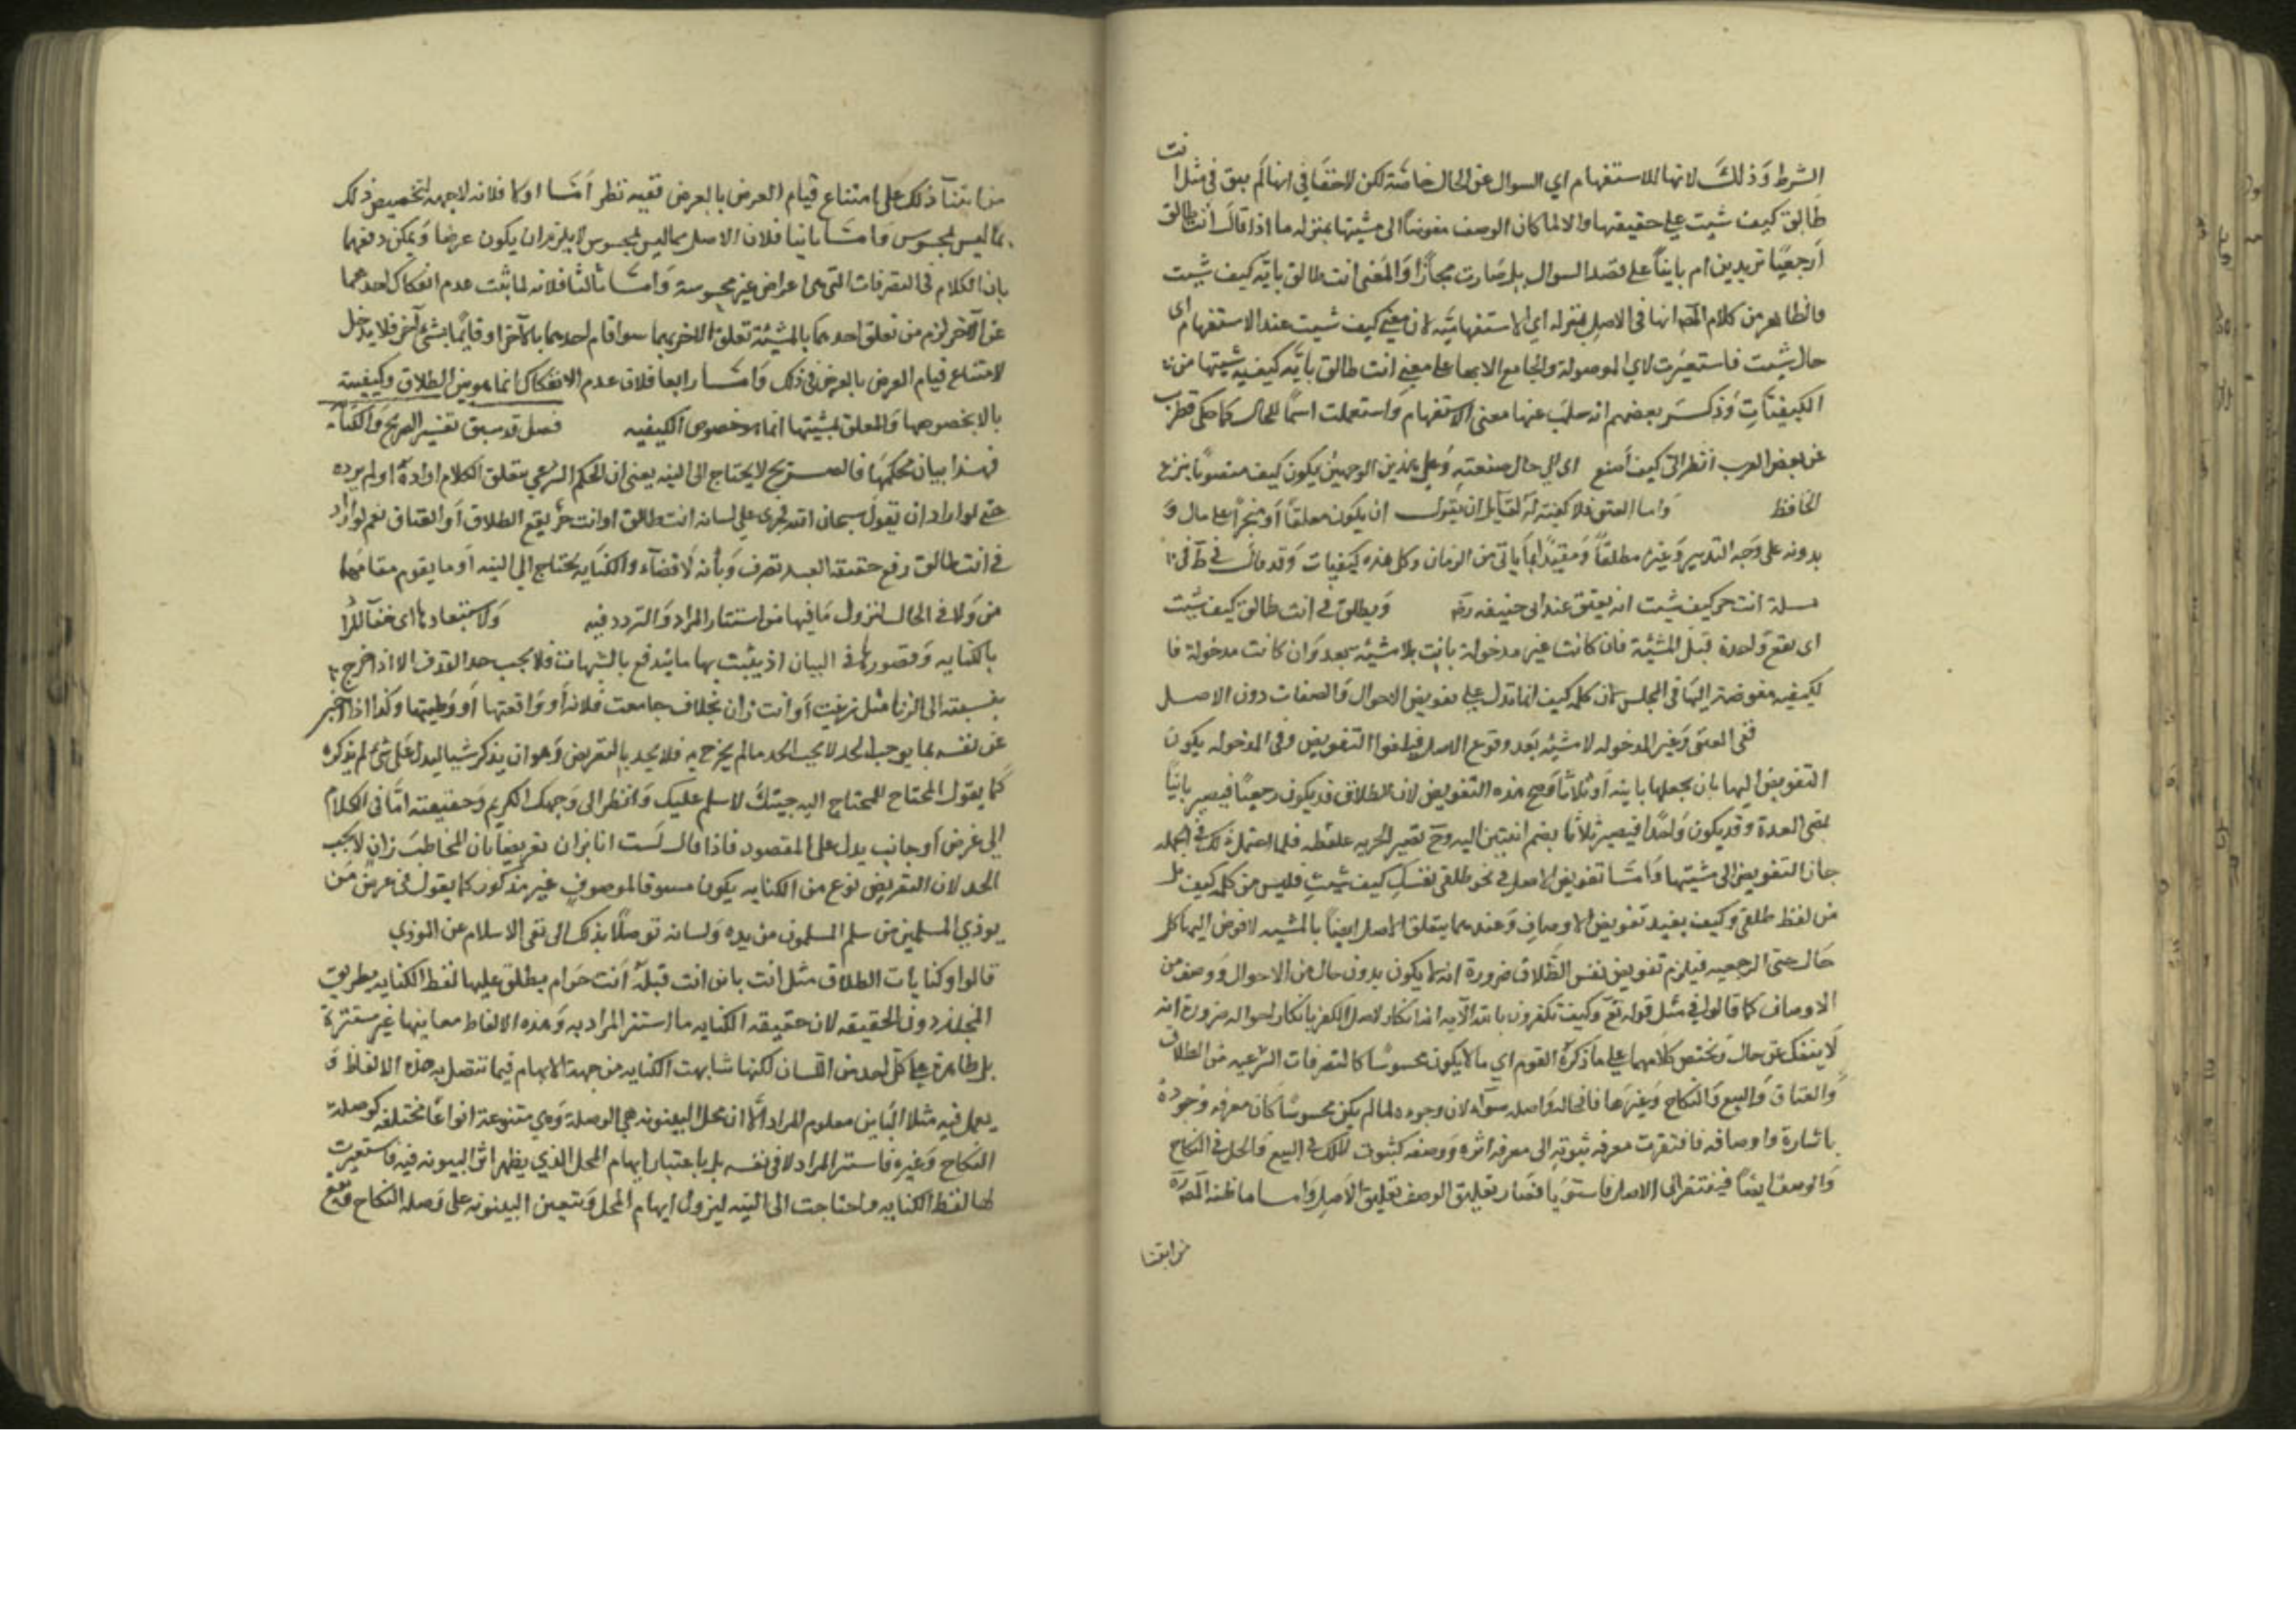 الشرط وذلك لانها للاستفهام اي السوال عن الحال خاصة لكن لاخفا في انها لم يبق في مثل انت
طالق كيف شيت علي حقيقتها والا لما كان الوصف مفوضاً الى مشيتها بمنزله ما اذا قال انت طالق
ارجعيًا تريدين ام بايناً على قصد السوال بل صارت مجازًا والمعنى انت طالق باية كيف شيت
والظاهر من كلام المصه انها في الاصل بمنزله اي الاستفهاميه لان معني كيف شيت عند الاستفهام اى
حال شيت فاستعيرت لاي الموصولة والجامع الابهام على معنى انت طالق باية كيفيه شيتها من
الكيفيات وذكر بعضهم انه سلب عنها معنى الاستفهام واستعملت اسمًا للحال كما حكى قطرب
عن بعض العرب انظر الى كيف اصنع اى الي حال صنعته وعلى هذين الوجهين يكون كيف منصوبًا بنزع
الخافظ واما العتق فلا كيفيه له لقايل ان يقول ان يكون معلقاً او منجزاً على مال و
بدونه على وجه التدبير وغيره مطلقاً ومقيداً بما ياتي من الزمان وكل هذه كيفيات وقد
مسلة انت حر كيف شيت انه يعتق عند ابي حنيفه رحه ويطلق في انت طالق كيف شيت
اى يقع واحدة قبل المشيئة فان كانت غير مدخولة بانت بلا مشيئه بعد وان كانت مدخولة فا
لكيفيه مفوضة اليها في المجلس لان كلمه كيف انما تدل على تفويض الاحوال والصفات دون الاصل
ففى العتق وغير المدخوله لا مشيئه بعد وقوع الاصل فيلغوا التفويض وفي المدخوله يكون
التفويض اليها بان يجعلها باينه او ثلاثا وصح هذه التفويض لان الطلاق قد يكون رجعياً فيصير بانياً
بمضى العدة وقد يكون واحدًا فيصير ثلاثا بضم اثنتين اليه فلما احتمل ذلك في الجمله
جاز التفويض الى مشيتها واما تفويض الاصل في نحو طلقي نفسك كيف شيت فليس من كلمه كيف بل
من لفظ طلقي وكيف يفيد تفويض الاوصاف وعندهما يتعلق الاصل ايضاً بالمشيه لانه فوض اليها كل
حال حتى الرجعيه فيلزم تفويض نفس الطلاق ضرورة انه لا يكون بدون حال من الاحوال ووصف من
الاوصاف كما قالوا في مثل قوله تع وكيف تكفرون بالله الآيه انه انكار لاصل الكفر بانكار احواله ضرورة انه
لا ينفك عن حال ويختص كلامهما على ما ذكره القوم اي ما لا يكون محسوسًا كالتصرفات الشرعيه من الطلاق
والعتاق والبيع والنكاح وغيرها فحاله واصله سوآء لان وجوده لما لم يكن محسوسًا كان معرفه وجوده
باثاره واوصافه فافتقرت معرفه ثبوته الى معرفه اثره ووصفه كثبوت الملك في البيع والحل في النكاح
والوصف ايضاً فيفتقر الى الاصل فاستويا فصار تعليق الوصف تعليق الاصل واما ما ظنه المصه
من ابتنا
من ابتنآ ذلك على امتناع قيام العرض بالعرض ففيه نظر اما اولا فلانه لا جهه لتخصيص ذلك
بما ليس بمحسوس واما ثانيا فلان الاصل مما ليس بمحسوس لا يلزم ان يكون عرضا ويمكن دفعهما
بان الكلام في التصرفات التي هي اعراض غير محسوسة واما ثالثا فلانه لما ثبت عدم انفكاك احدهما
عن الاخر لزم من تعلق احدهما بالمشيئة تعلق الاخر بها سوا قام احدهما بالآخر او قايمًا بشئ آخر فلا يدخل
لامتناع قيام العرض بالعرض في ذلك واما رابعا فلان عدم الانفكاك انما هو بين الطلاق وكيفيته
بالا بخصوصها والمعلق بمشيتها انما هو خصوص الكيفيه فصل قد سبق تفسير الصريح والكنايه
فهذا بيان حكمهما فالصريح لا يحتاج الى النيه يعنى ان الحكم الشرعي يتعلق الكلام اراده او لم يرده
حتى لو اراد ان يقول سبحان الله فجرى على لسانه انت طالق او انت حر يقع الطلاق او العتاق نعم لو اراد
في انت طالق رفع حقيقه القيد تصرف ديانه لا قضآء والكنايه يحتاج الي النيه او ما يقوم مقامها
من دلالة الحال لنزول ما فيها من استتار المراد والتردد فيه ولاستبعادها اى خفآ المراد
بالكنايه وقصورها في البيان اذ يثبت بها ما يندفع بالشبهات فلا يجب حد القذف الا اذا صرح
بنسبته الى الزنا مثل زنيت او انت زان بخلاف جامعت فلانه او واقعتها او وطيتها وكذا اذا اخبر
عن نفسه بما يوجب الحد لا يجب الحد ما لم يصرح به فلا يحد بالتعريض وهو ان يذكر شيا ليدل على شئ لم يذكره
كما يقول المحتاج للمحتاج اليه جيتك لاسلم عليك وانظر الى وجهك الكريم وحقيقته امالة الكلام
الي عرض اوجانب يدل على المقصود فاذا قال لست انا بزان تعريضاً بان المخاطب زان لا يجب
الحد لان التعريض نوع من الكنايه يكون مسوقا لموصوف غير مذكور كما يقول في عرض من
يوذي المسلمين من سلم المسلمون من يده ولسانه توصلا بذلك الى نفي الاسلام عن الموذي
قالوا وكنايات الطلاق مثل انت باين انت قبلة انت حرام يطلق عليها لفظ الكنايه بطريق
المجاز دون الحقيقه لان حقيقه الكنايه ما استتر المراد به وهذه الالفاظ معاينها غير مستترة
بل ظاهرة على كل احد من اللسان لكنها شابهت الكنايه من جهة الابهام فيما تتصل به هذه الالفاظ و
يعمل فيه مثلا الباين معلوم المراد الا ان محل البينونه هي الوصلة وهي متنوعة انواعًا مختلفه كوصلة
النكاح وغيره فاستتر المراد لا في نفسه بل باعتبار ابهام المحل الذي يظهر اثر البينونه فيه فاستعيرت
لها لفظ الكنايه واحتاجت الى النيه ليزول ابهام المحل ويتعين البينونه على وصله النكاح